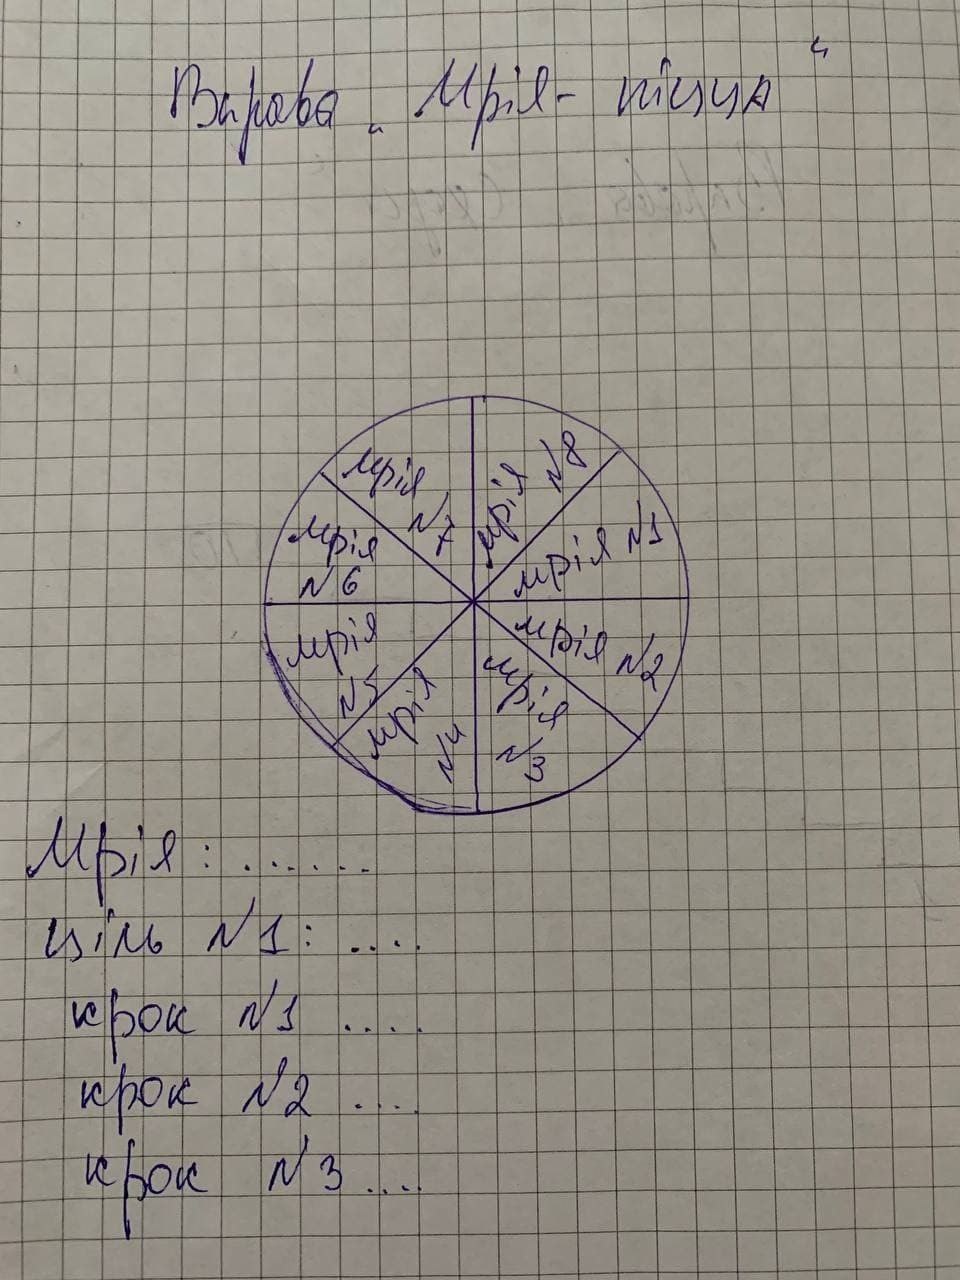 Вправа „Мрія - піцца“
мрія №8
мрія №1
мрія №2
мрія №3
мрія №4
мрія №5
мрія №6
мрія №7
Мрія: ......
ціль №1: ....
крок №1 ....
крок №2 ....
крок №3 ....